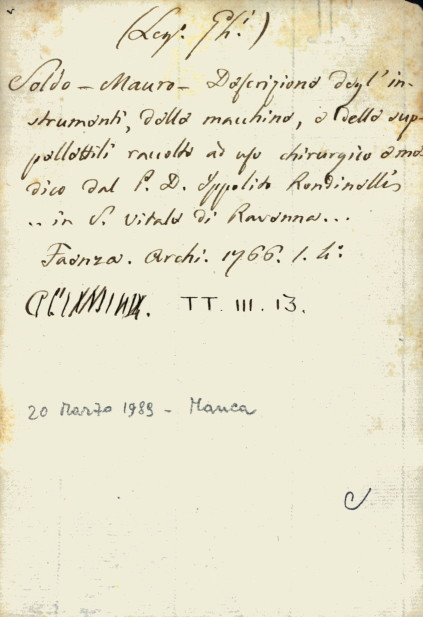 (Leg. Ghi.)
Soldo - Mauro - Descrizione degl' in-
strumenti, delle macchine, e delle sup-
pellettili raccolte ad uso chirurgico e me-
dico dal P. D. Ippolito Rondinelli
.. in S. Vitale di Ravenna...
Faenza. Archi. 1766. 1. 4°
TT. III. 13.
20 Marzo 1989 - Manca